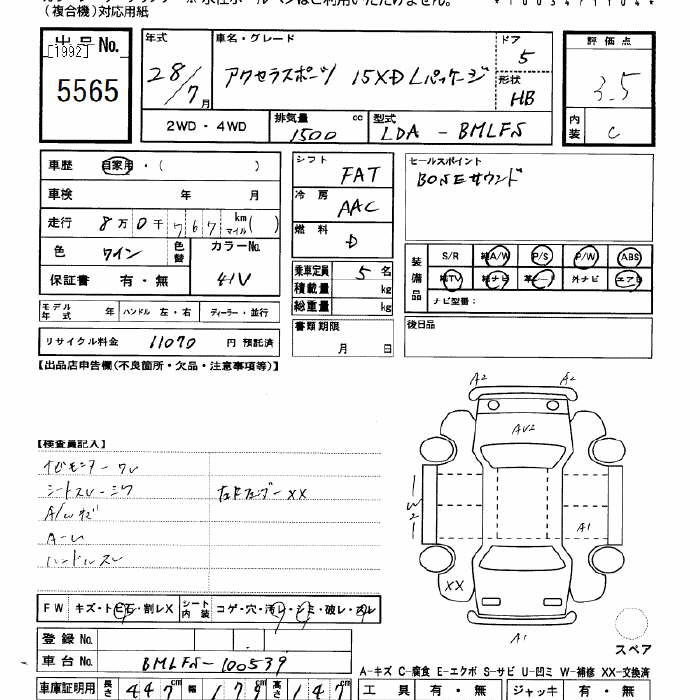 (複合機)対応用紙
出品No.
[1992]
5565
年式 28/7月
車名・グレード アクセラスポーツ 15XD Lパッケージ
ドア 5
形状 HB
評価点 3.5
内装 C
2WD・4WD
排気量 1500 cc
型式 LDA-BMLFS
車歴 自家用・( )
車検 年 月
走行 8万0千767 km マイル( )
色 ワイン 色替 カラーNo. 41V
保証書 有・無
シフト FAT
冷房 AAC
燃料 D
乗車定員 5名
積載量 kg
総重量 kg
書類期限 月 日
セールスポイント
BOSEサウンド
装備品
S/R 純A/W P/S P/W ABS
純TV 純ナビ 革シート 外ナビ エアB
ナビ型番:
モデル年式 年 ハンドル 左・右 ディーラー・並行
リサイクル料金 11070 円 預託済
後日品
【出品店申告欄(不良箇所・欠品・注意事項等)】
A2 A2
AU2
W2
A1
XX
A1
スペア
【検査員記入】
シートスレ-シワ
A/Wキズ
ハンドルスレ
FW キズ・トビ石・割レX シート内装 コゲ・穴・汚レ・シミ・破レ・スレ
登録No.
車台No. BMLFS-100539
A-キズ C-腐食 E-エクボ S-サビ U-凹ミ W-補修 XX-交換済
車庫証明用 長さ 447cm 幅 179cm 高さ 147cm
工具 有・無 ジャッキ 有・無